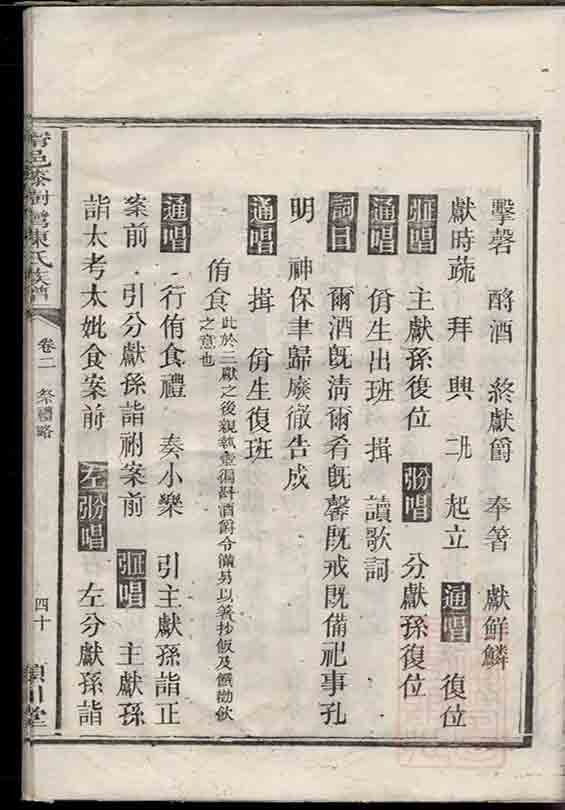 擊磬　酹酒　終獻爵　奉箸　獻鮮鱗
獻時蔬　拜　興　起立　通唱　復位
主獻孫復位　分獻孫復位
通唱　佾生出班　揖　讀歌詞
詞曰　爾酒既清爾肴既馨既戒既備祀事孔
明　神保聿歸廢徹告成
通唱　揖　佾生復班
侑食此於三獻之後親執壺徧斟酒爵令滿另以箸抄飯及饌勸飲
之意也
通唱　行侑食禮　奏小樂　引主獻孫詣正
案前　引分獻孫詣祔案前　主獻孫
詣太考太妣食案前　左　唱　左分獻孫詣
邑漆樹灣陳氏族譜　卷二　祭禮略　四十　潁川堂